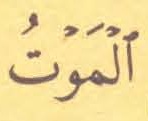 اَلْمَوْتُ